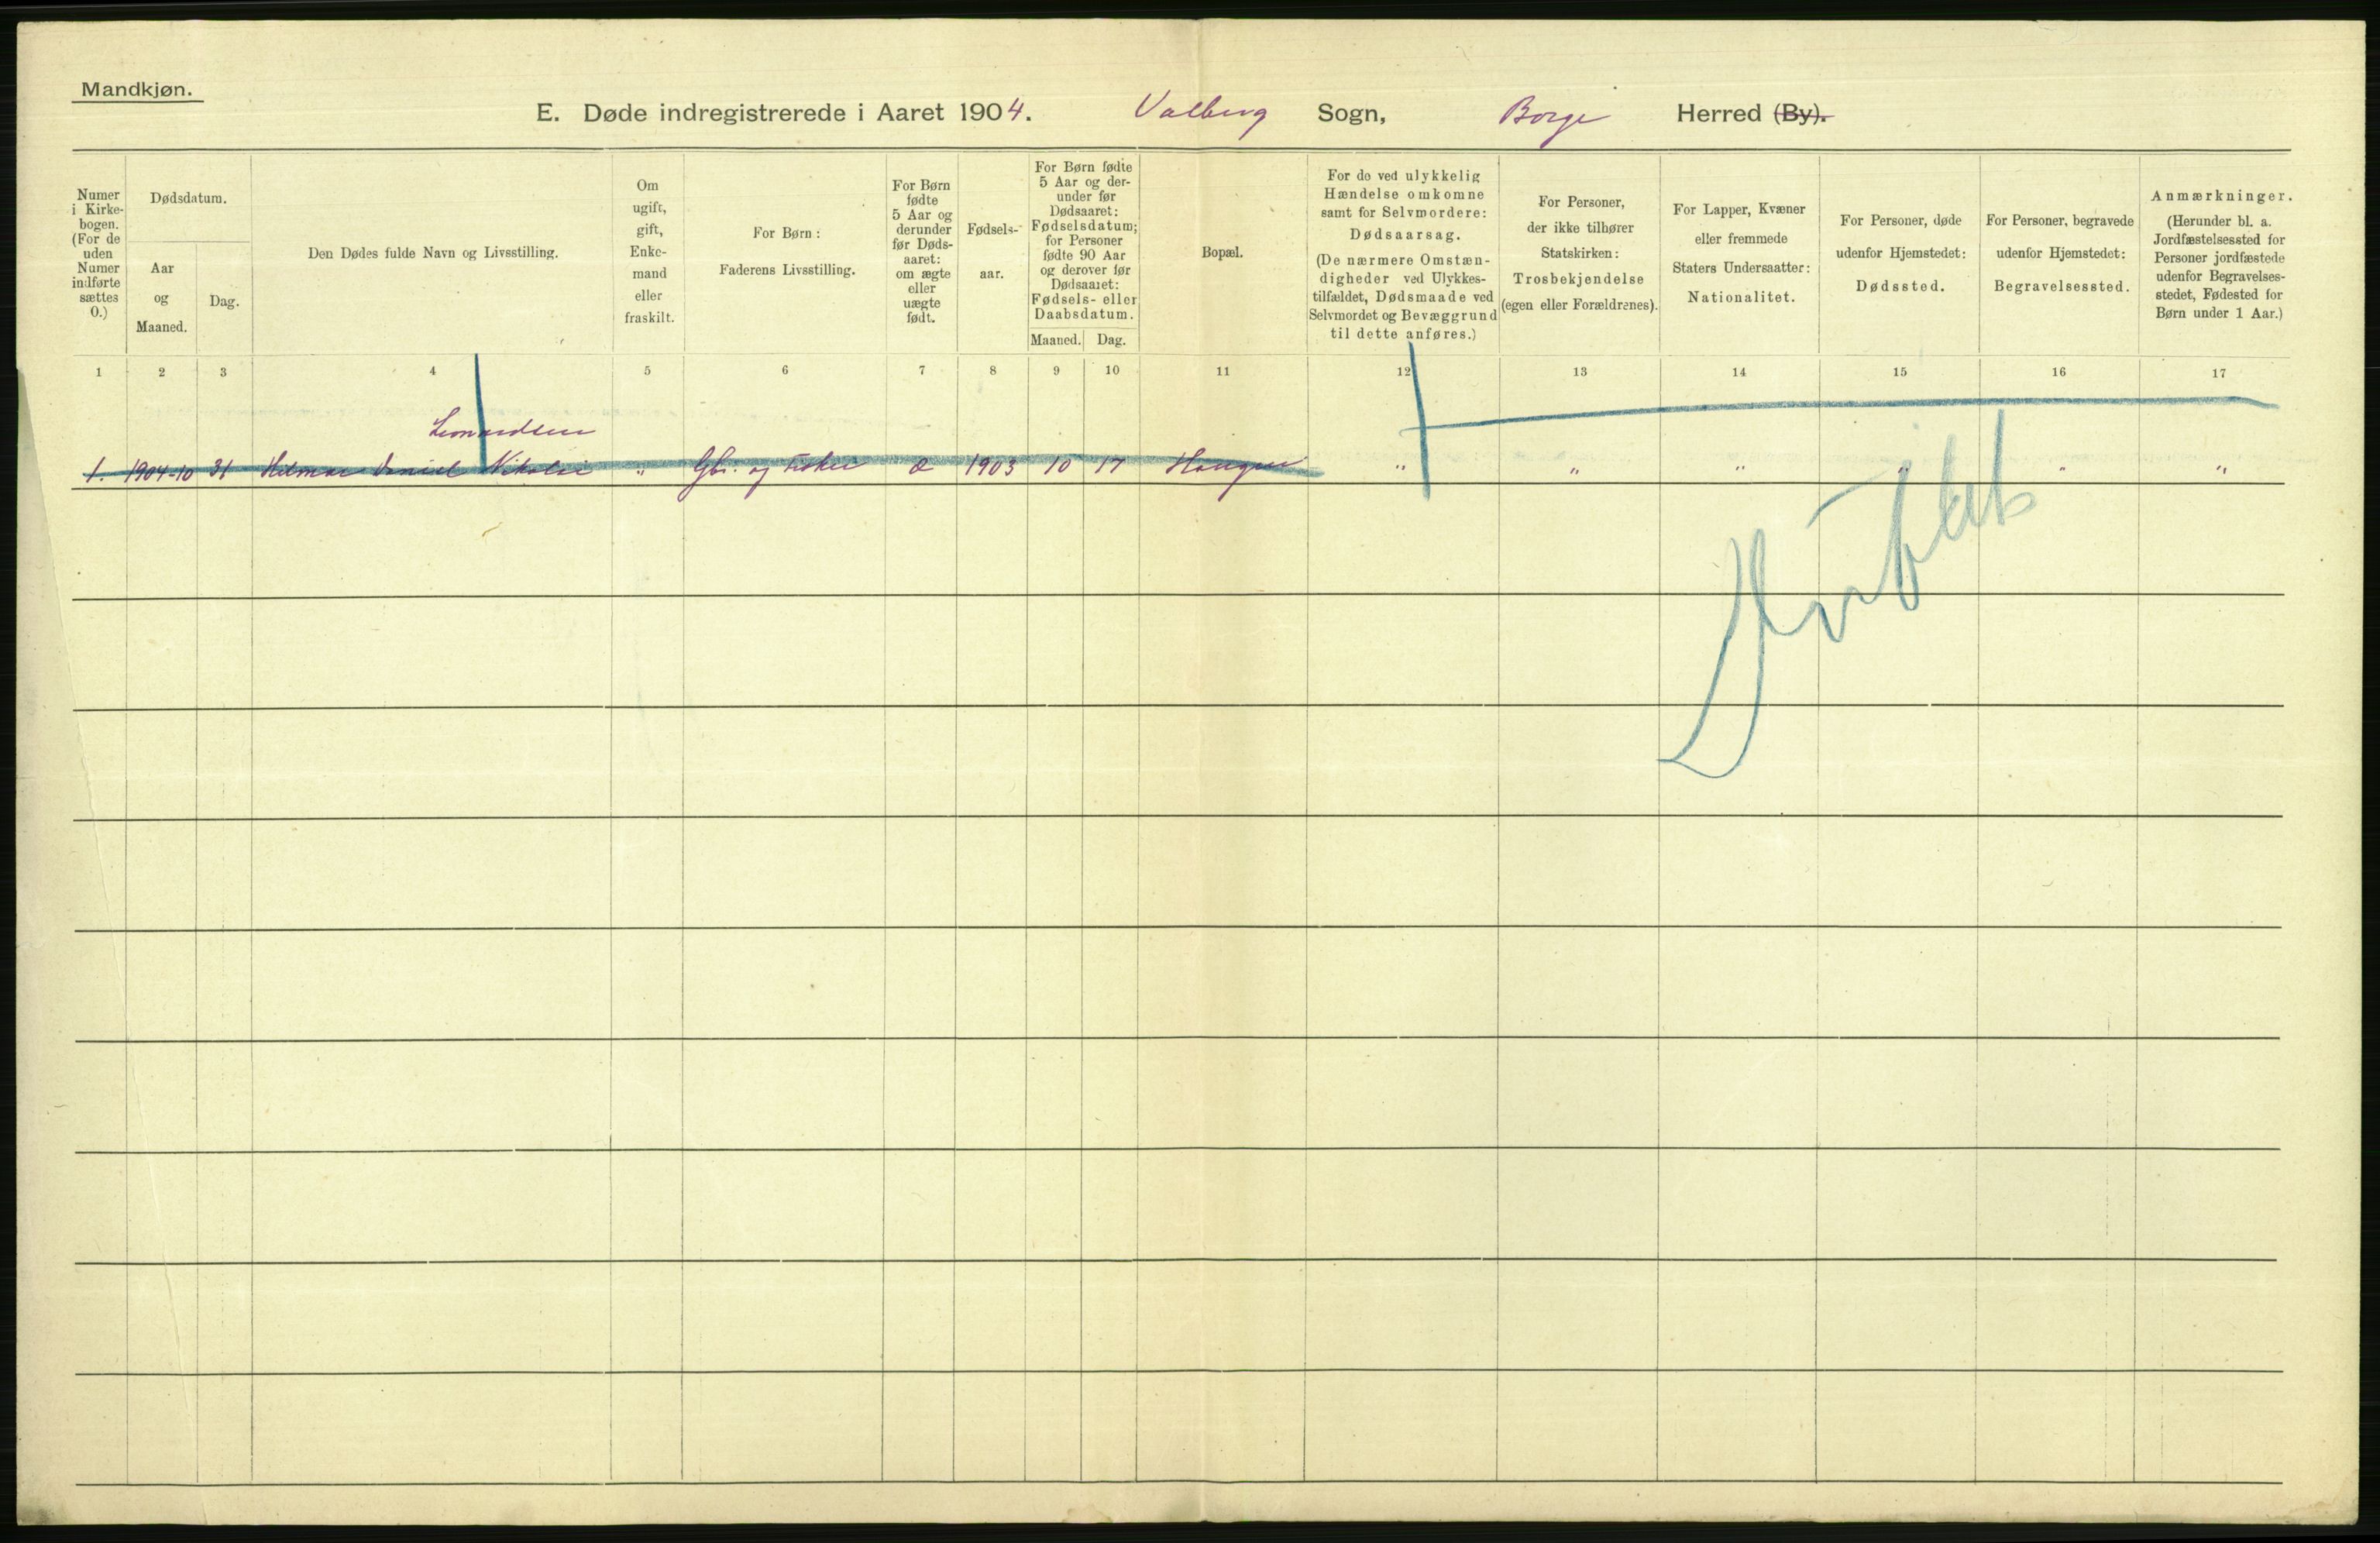 Mandkjøn.
E. Døde indregistrerede i Aaret 1904. Valberg Sogn, Borge Herred (By).
Numer
i Kirke-
bogen.
(For de
uden
Numer
indførte
sættes
0.)
Dødsdatum.
Aar
og
Maaned.
Dag.
Den Dødes fulde Navn og Livsstilling.
Om
ugift,
gift,
Enke-
mand
eller
fraskilt.
For Børn:
Faderens Livsstilling.
For Børn
fødte
5 Aar og
derunder
før Døds-
aaret:
om ægte
eller
uægte
født.
Fødsels-
aar.
For Børn fødte
5 Aar og der-
under før
Dødsaaret:
Fødselsdatum;
for Personer
fødte 90 Aar
og derover før
Dødsaaret:
Fødsels- eller
Daabsdatum.
Maaned. Dag.
Bopæl.
For de ved ulykkelig
Hændelse omkomne
samt for Selvmordere:
Dødsaarsag.
(De nærmere Omstæn-
digheder ved Ulykkes-
tilfældet, Dødsmaade ved
Selvmordet og Bevæggrund
til dette anføres.)
For Personer,
der ikke tilhører
Statskirken:
Trosbekjendelse
(egen eller Forældrenes).
For Lapper, Kvæner
eller fremmede
Staters Undersaatter:
Nationalitet.
For Personer, døde
udenfor Hjemstedet:
Dødssted.
For Personer, begravede
udenfor Hjemstedet:
Begravelsessted.
Anmærkninger.
(Herunder bl. a.
Jordfæstelsessted for
Personer jordfæstede
udenfor Begravelses-
stedet, Fødested for
Børn under 1 Aar.)
1 2 3 4 5 6 7 8 9 10 11 12 13 14 15 16 17
Leonardsen
1. 1904-10 31 Hilmar Daniel Nikolai " Gbr. og Fisker æ 1903 10 17 Haugen " " " " " "